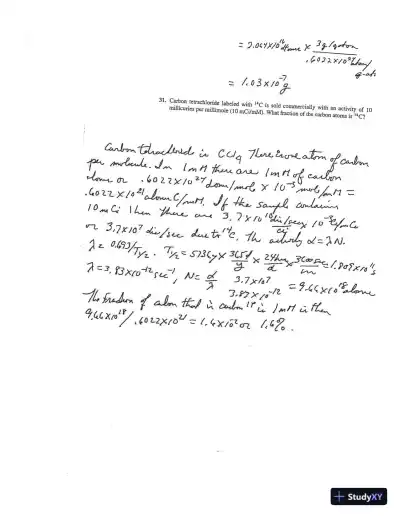 = 2.064 X 10^16 atoms x 3g/gatom / .6022 X 10^24 atoms/g-at
= 1.03 X 10^-7 g
31. Carbon tetrachloride labeled with ¹⁴C is sold commercially with an activity of 10
millicuries per millimole (10 mCi/mM). What fraction of the carbon atoms is ¹⁴C?
Carbon tetrachloride is CCl4 There is one atom of carbon
per molecule. In 1 mM there are 1 mM of carbon
atoms or .6022 X 10^24 atoms/mol X 10^-3 mol/mM =
.6022 X 10^21 atoms C/mM. If the sample contains
10 mCi then there are 3.7 X 10^10 dis/sec/Ci X 10^-3 Ci/mCi
or 3.7 X 10^7 dis/sec due to ¹⁴C. The activity α = λN.
λ = 0.693/T½. T½ = 5736y X 365d/y X 24hrs/d X 3600sec/hr = 1.809 X 10^11 s
λ = 3.83 X 10^-12 sec^-1, N = α/λ 3.7 X 10^7 / 3.83 X 10^-12 = 9.66 X 10^18 atoms
The fraction of atoms that is carbon 14 is 1 mM is then
9.66 X 10^18 / .6022 X 10^21 = 1.6 X 10^-2 or 1.6%.
StudyXY